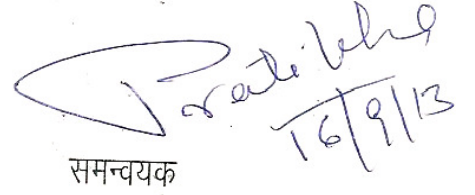 Pratibha
16/9/13
समन्वयक